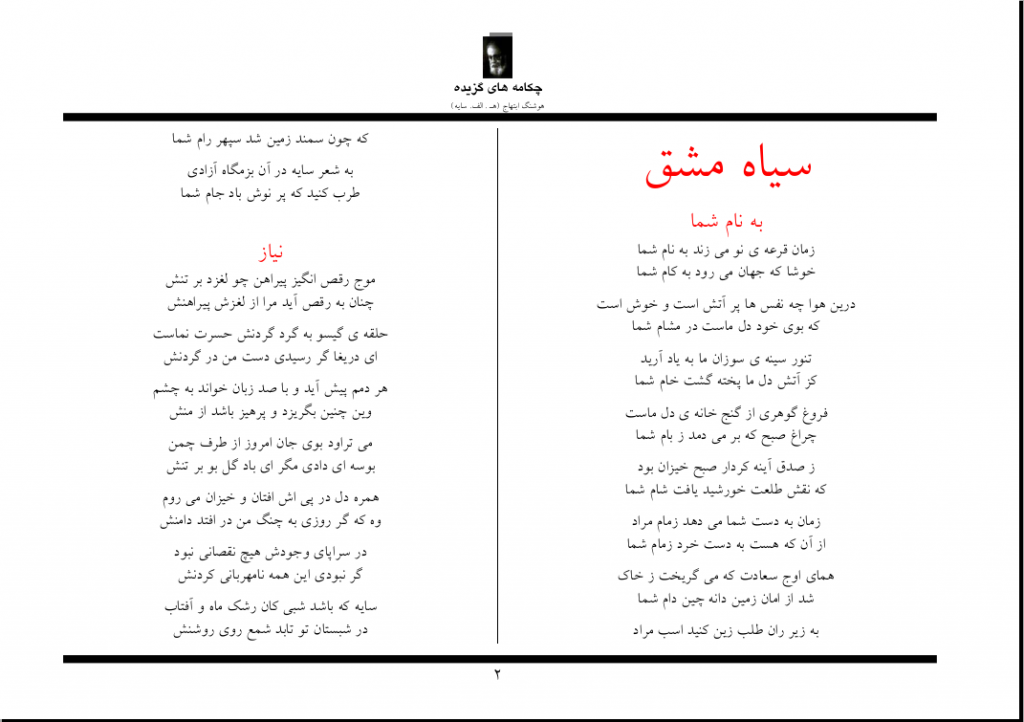 چکامه های گزیده
هوشنگ ابتهاج (هـ . الف. سایه)
سیاه مشق
به نام شما
زمان قرعه ی نو می زند به نام شما
خوشا که جهان می رود به کام شما
درین هوا چه نفس ها پر آتش است و خوش است
که بوی خود دل ماست در مشام شما
تنور سینه ی سوزان ما به یاد آرید
کز آتش دل ما پخته گشت خام شما
فروغ گوهری از گنج خانه ی دل ماست
چراغ صبح که بر می دمد ز بام شما
ز صدق آینه کردار صبح خیزان بود
که نقش طلعت خورشید یافت شام شما
زمان به دست شما می دهد زمام مراد
از آن که هست به دست خرد زمام شما
همای اوج سعادت که می گریخت ز خاک
شد از امان زمین دانه چین دام شما
به زیر ران طلب زین کنید اسب مراد
که چون سمند زمین شد سپهر رام شما
به شعر سایه در آن بزمگاه آزادی
طرب کنید که پر نوش باد جام شما
نیاز
موج رقص انگیز پیراهن چو لغزد بر تنش
چنان به رقص آید مرا از لغزش پیراهنش
حلقه ی گیسو به گرد گردنش حسرت نماست
ای دریغا گر رسیدی دست من در گردنش
هر دمم پیش آید و با صد زبان خواند به چشم
وین چنین بگریزد و پرهیز باشد از منش
می تراود بوی جان امروز از طرف چمن
بوسه ای دادی مگر ای باد گل بو بر تنش
همره دل در پی اش افتان و خیزان می روم
وه که گر روزی به چنگ من در افتد دامنش
در سراپای وجودش هیچ نقصانی نبود
گر نبودی این همه نامهربانی کردنش
سایه که باشد شبی کان رشک ماه و آفتاب
در شبستان تو تابد شمع روی روشنش
۲